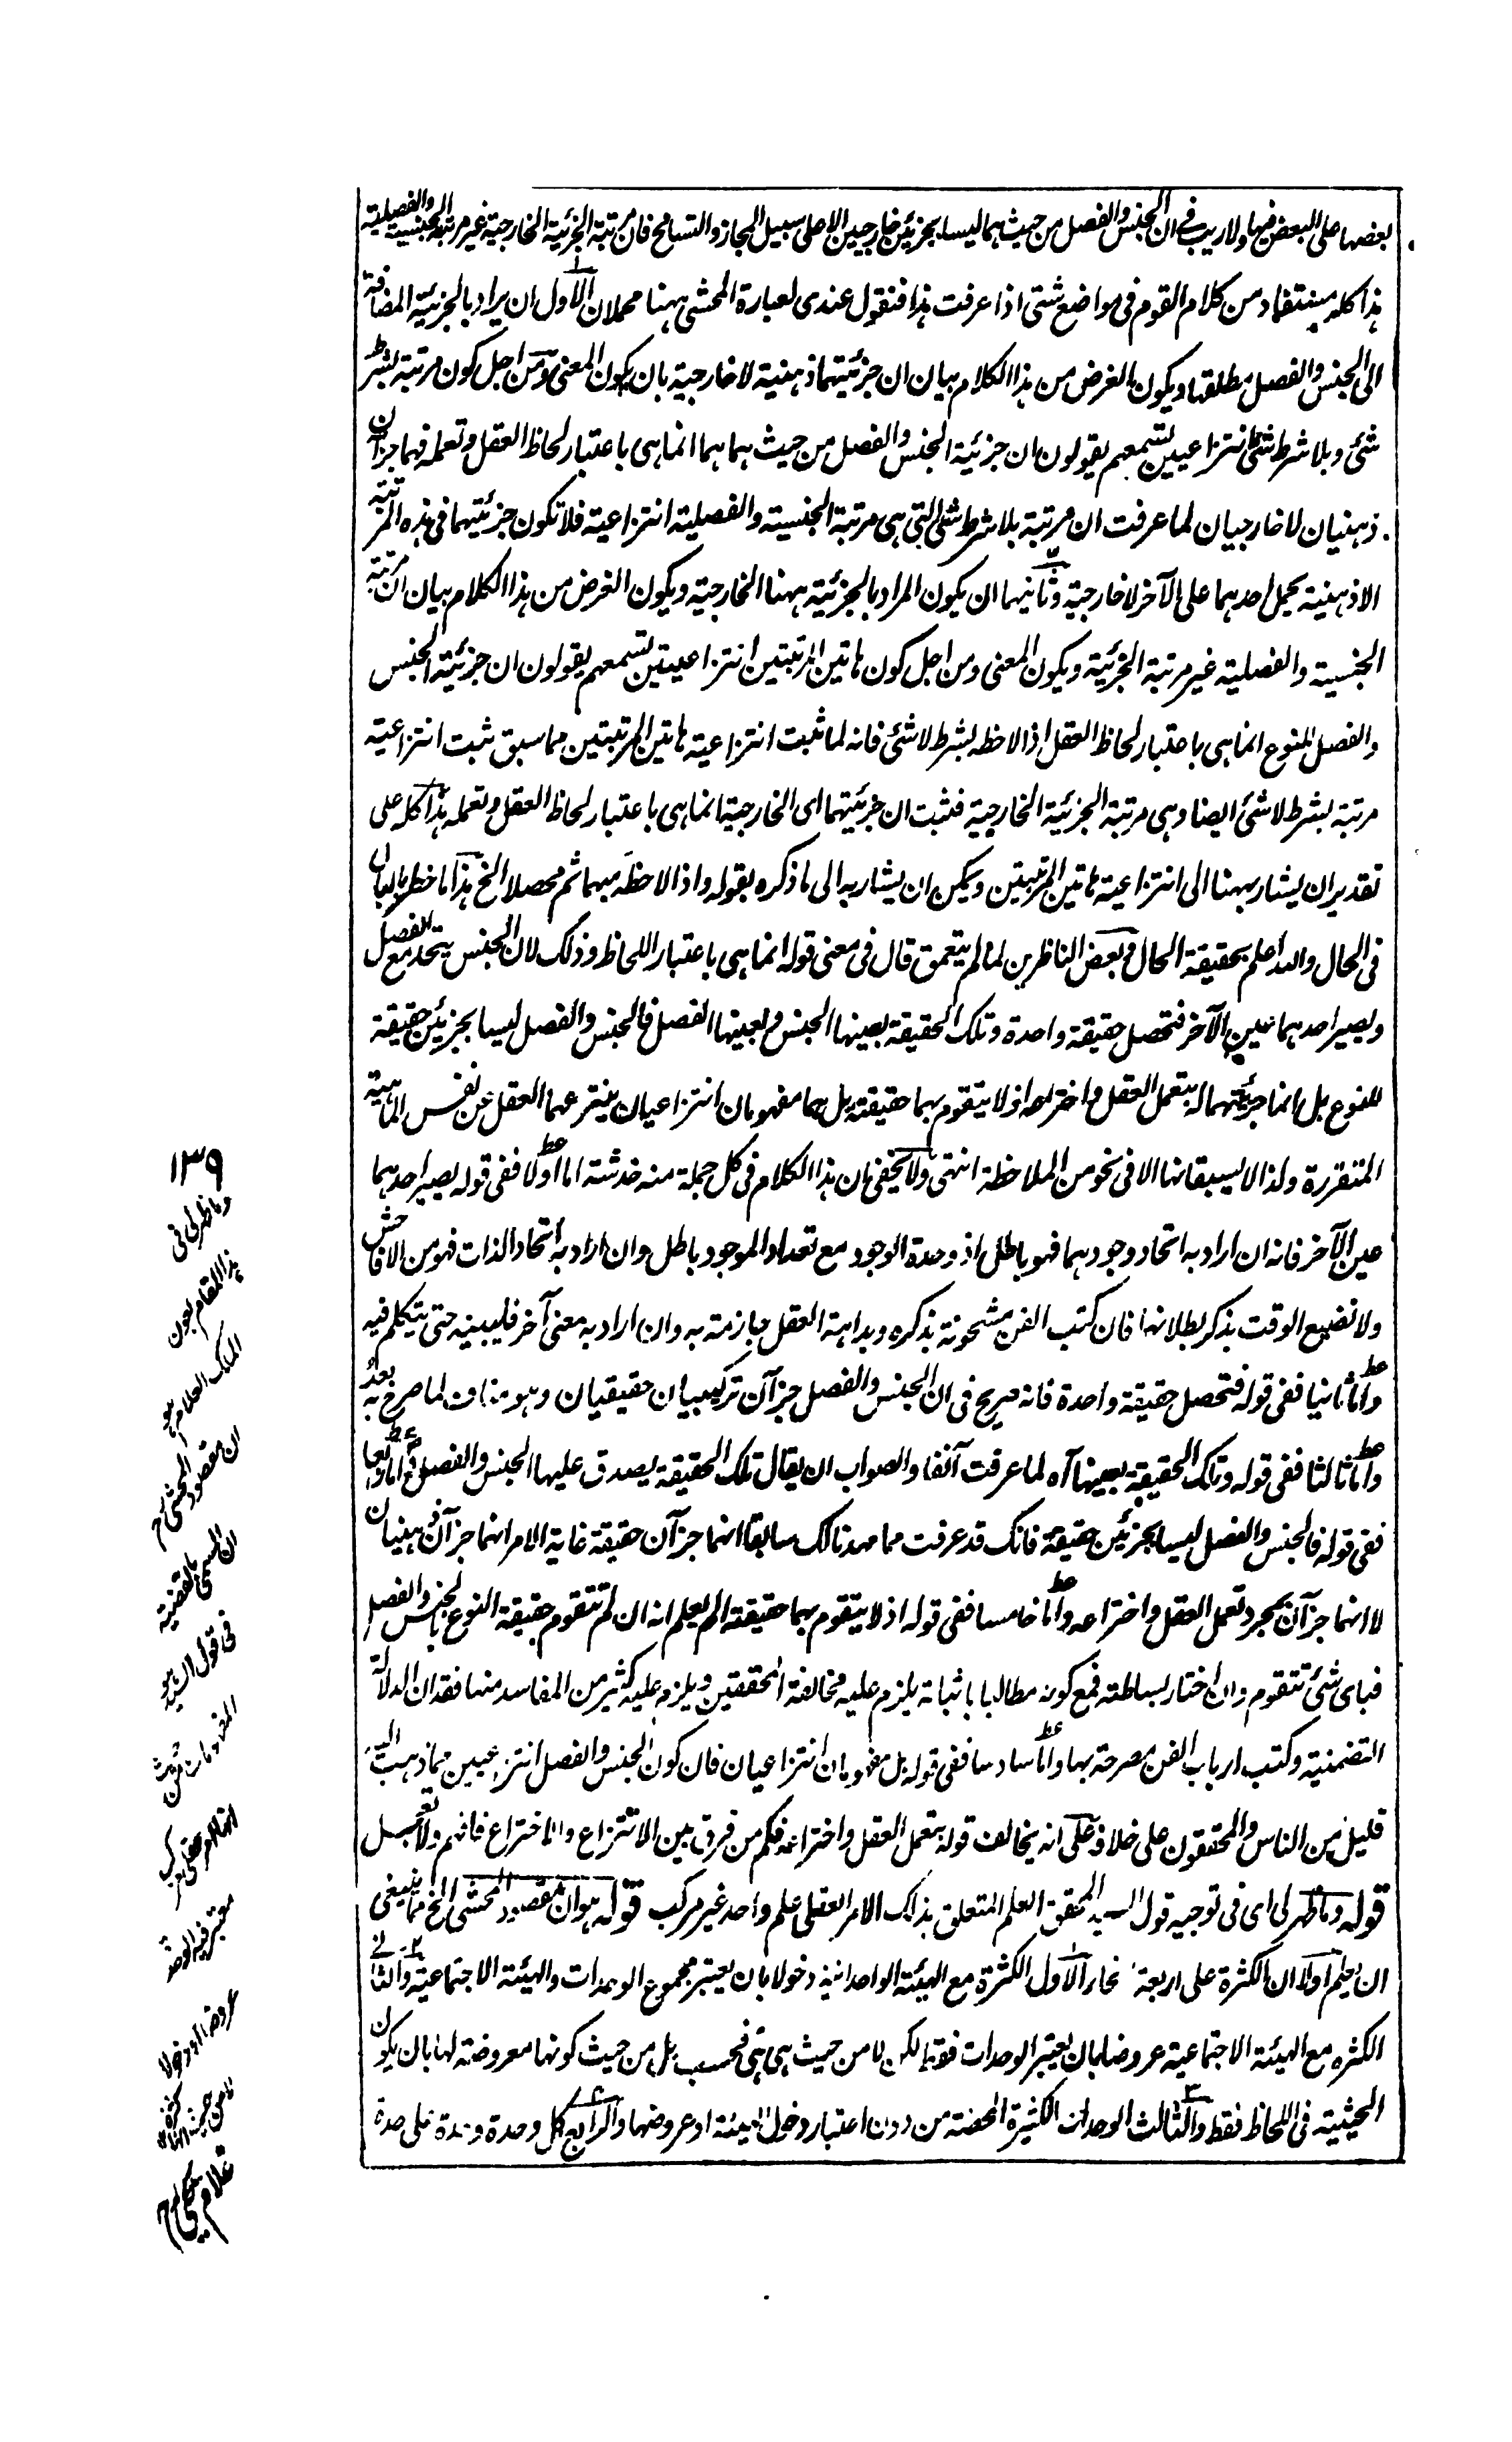 بعضها على البعض فيها ولا ريب في ان الجنس والفصل من حيث هما ليسا بجزئين خارجين الا على سبيل المجاز والتسامح فان مرتبة الجزئية الخارجية غير مرتبة الجنسية والفصيلية
هذا كله مستفاد من كلام القوم في مواضع شتى اذا عرفت هذا فنقول عندى لعبارة المحشى ههنا محملان الاول ان يراد بالجزئية المضافة
الى الجنس والفصل مطلقها ويكون الغرض من هذا الكلام بيان ان جزئيتهما ذهنية لا خارجية بان يكون المعنى ومن اجل كون مرتبة بشرط
شئ وبلا شرط شئ انتزاعيين تسمعهم يقولون ان جزئية الجنس والفصل من حيث هما هما انما هى باعتبار لحاظ العقل وتعمله فهما جزآن
ذهنيان لا خارجيان لما عرفت ان مرتبة بلا شرط شئ التى هى مرتبة الجنسية والفصلية انتزاعية فلا تكون جزئيتهما فى هذه المرتبة
الا ذهنية يحمل احدهما على الآخر لا خارجية وثانيهما ان يكون المراد بالجزئية ههنا الخارجية ويكون الغرض من هذا الكلام بيان ان مرتبة
الجنسية والفصلية غير مرتبة الجزئية ويكون المعنى ومن اجل كون هاتين المرتبتين انتزاعيتين تسمعهم يقولون ان جزئية الجنس
والفصل للنوع انما هى باعتبار لحاظ العقل اذا لاحظه بشرط لا شئ فانه لما ثبت انتزاعية هاتين المرتبتين مما سبق ثبت انتزاعية
مرتبة بشرط لا شئ ايضا وهى مرتبة الجزئية الخارجية فثبت ان جزئيتهما اى الخارجية انما هى باعتبار لحاظ العقل وتعمله هذا كله على
تقدير ان يشار بههنا الى انتزاعية هاتين المرتبتين ويمكن ان يشار به الى ما ذكره بقوله واذا لاحظه مبهما ثم محصلا الخ هذا ما خطر بالبال
فى الحال والله اعلم بحقيقة الحال وبعض الناظرين لما لم يتعمق قال فى معنى قوله انما هى باعتبار اللحاظ وذلك لان الجنس يتحد مع الفصل
ويصير احدهما عين الآخر فتحصل حقيقة واحدة وتلك الحقيقة بعينها الجنس وبعينها الفصل فالجنس والفصل ليسا بجزئين حقيقة
للنوع بل انما جزئيتهما له بتعمل العقل واختراعه اذ لا يتقوم بهما حقيقته بل هما مفهومان انتزاعيان ينتزعهما العقل عن نفس الماهية
المتقررة ولذا لا يسبقانها الا فى نحو من الملاحظة انتهى ولا يخفى ان هذا الكلام فى كل جملة منه خدشة اما اولا ففى قوله يصير احدهما
عين الآخر فانه ان اراد به اتحاد وجودهما فهو باطل اذ وحدة الوجود مع تعداد الموجود باطل وان اراد به اتحاد الذات فهو من الافاحش
ولا نضيع الوقت بذكر بطلانها فان كتب الفن مشحونة بذكره وبداهة العقل جازمة به وان اراد به معنى آخر فليبينه حتى يتكلم فيه
واما ثانيا ففى قوله فتحصل حقيقة واحدة فانه صريح فى ان الجنس والفصل جزآن تركيبيان حقيقيان وهو مناف لما صرح به بعد
واما ثالثا ففى قوله وتلك الحقيقة بعينها آه لما عرفت آنفا والصواب ان يقال تلك الحقيقة يصدق عليها الجنس والفصل واما رابعا
ففى قوله فالجنس والفصل ليسا بجزئين حقيقة فانك قد عرفت مما مهدنا لك سابقا انهما جزآن حقيقة غاية الامر انهما جزآن ذهنيان
لا انهما جزآن بمجرد تعمل العقل واختراعه واما خامسا ففى قوله اذ لا يتقوم بهما حقيقته الم يعلم انه ان لم تتقوم حقيقة النوع بالجنس والفصل
فباى شئ تتقوم وان اختار بساطته فمع كونه مطالبا باثباته يلزم عليه مخالفة المحققين ويلزم عليه كثير من المفاسد منها فقدان الدلالة
التضمنية وكتب ارباب الفن مصرحة بها واما سادسا ففى قوله بل مفهومان انتزاعيان فان كون الجنس والفصل انتزاعيين مما ذهب اليه
قليل من الناس والمحققون على خلافه على انه يخالف قوله بتعمل العقل واختراعه فكم من فرق بين الانتزاع والاختراع فافهم ولا تعجل
قوله وما ظهر لى اى فى توجيه قول السيد المحقق العلم المتعلق بذلك الامر العقلى علم واحد غير مركب قوله هو ان مقصود المحشى الخ مما ينبغى
ان يعلم اولا ان الكثرة على اربعة انحاء الاول الكثرة مع الهيئة الواحدانية دخولا بان يعتبر مجموع الوحدات والهيئة الاجتماعية والثانى
الكثرة مع الهيئة الاجتماعية عروضا بان يعتبر الوحدات فقط لكن لا من حيث هى هى فحسب بل من حيث كونها معروضة لها بان يكون
الحيثية فى اللحاظ فقط والثالث الوحدات الكثيرة المحضة من دون اعتبار دخول الهيئة او عروضها والرابع كل وحدة وحدة على حدة
١٣٩
وما ظهر لى فى
هذا المقام بعون
الملك العلام هو
ان مقصود المحشى رح
ان المسمى بالقضية
فى قول السيد هو
المفهومات من حيث
انها امر عقلى مركب
معتبر فيه الوحدة
عروضا او دخولا
لا من حيث انها كثرة